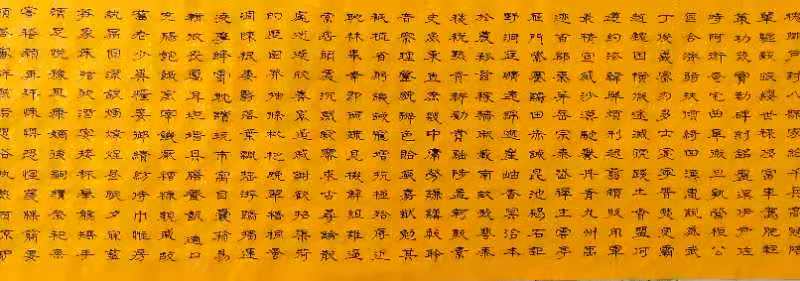 槐卿戶封八縣家給千兵高冠陪
輦驅轂振纓世祿侈富車駕肥輕
策功茂實勒碑刻銘磻溪伊尹佐
時阿衡奄宅曲阜微旦孰營桓公
匡合濟弱扶傾綺迴漢惠說感武
丁俊乂密勿多士寔寧晉楚更霸
趙魏困橫假途滅虢踐土會盟何
遵約法韓弊煩刑起翦頗牧用軍
最精宣威沙漠馳譽丹青九州禹
迹百郡秦并嶽宗泰岱禪主雲亭
雁門紫塞雞田赤城昆池碣石鉅
野洞庭曠遠綿邈巖岫杳冥治本
於農務茲稼穡俶載南畝我藝黍
稷稅熟貢新勸賞黜陟孟軻敦素
史魚秉直庶幾中庸勞謙謹敕聆
音察理鑒貌辨色貽厥嘉猷勉其
祗植省躬譏誡寵增抗極殆辱近
恥林皋幸即兩疏見機解組誰逼
索居閒處沉默寂寥求古尋論散
慮逍遙欣奏累遣慼謝歡招渠荷
的歷園莽抽條枇杷晚翠梧桐早
凋陳根委翳落葉飄颻遊鵾獨運
凌摩絳霄耽讀翫市寓目囊箱易
輶攸畏屬耳垣牆具膳餐飯適口
充腸飽飫烹宰飢厭糟糠親戚故
舊老少異糧妾御績紡侍巾帷房
紈扇圓潔銀燭煒煌晝眠夕寐藍
筍象床弦歌酒讌接杯舉觴矯手
頓足悅豫且康嫡後嗣續祭祀烝
嘗稽顙再拜悚懼恐惶牋牒簡要
顧答審詳骸垢想浴執熱願涼驢